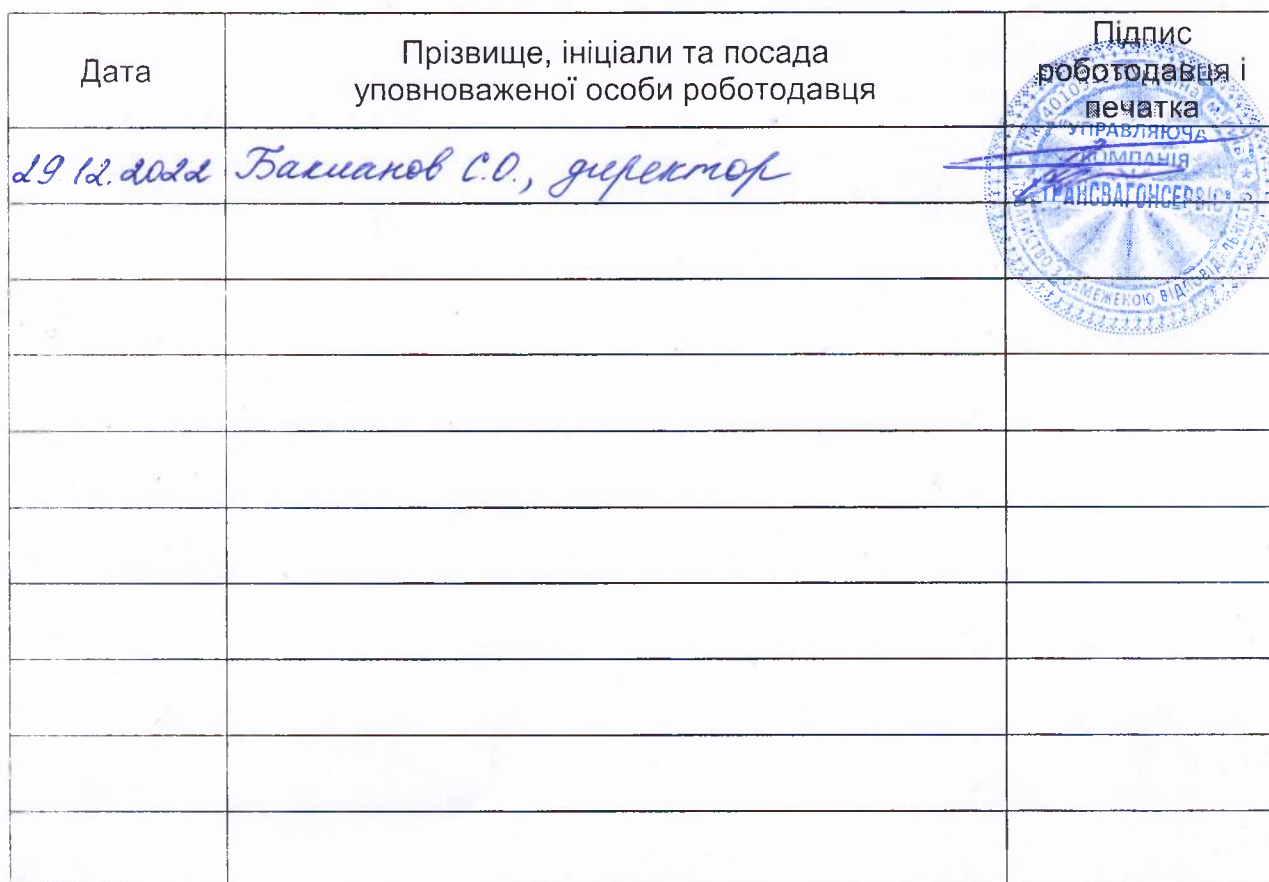 Дата
Прізвище, ініціали та посада
уповноваженої особи роботодавця
Підпис
роботодавця і
печатка
29.12.2022 Бакланов С.О., директор
"УПРАВЛЯЮЧА
КОМПАНІЯ
ТРАНСВАГОНСЕРВІС"
ОБМЕЖЕНОЮ ВІДПОВІДАЛЬНІСТЮ